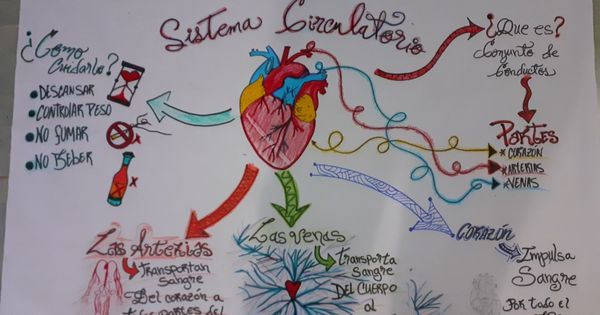 Sistema Circulatorio
¿Como
Cuidarlo?
• DESCANSAR
• CONTROLAR PESO
• NO FUMAR
• NO BEBER
¿Que es?
Conjunto de
Conductos
PARTES
* CORAZÓN
* ARTERIAS
* VENAS
Las Arterias
Transportan
Sangre
Del corazón a
partes del
Las Venas
Transporta
Sangre
DEL CUERPO
al
CORAZÓN
Impulsa
Sangre
Por todo el